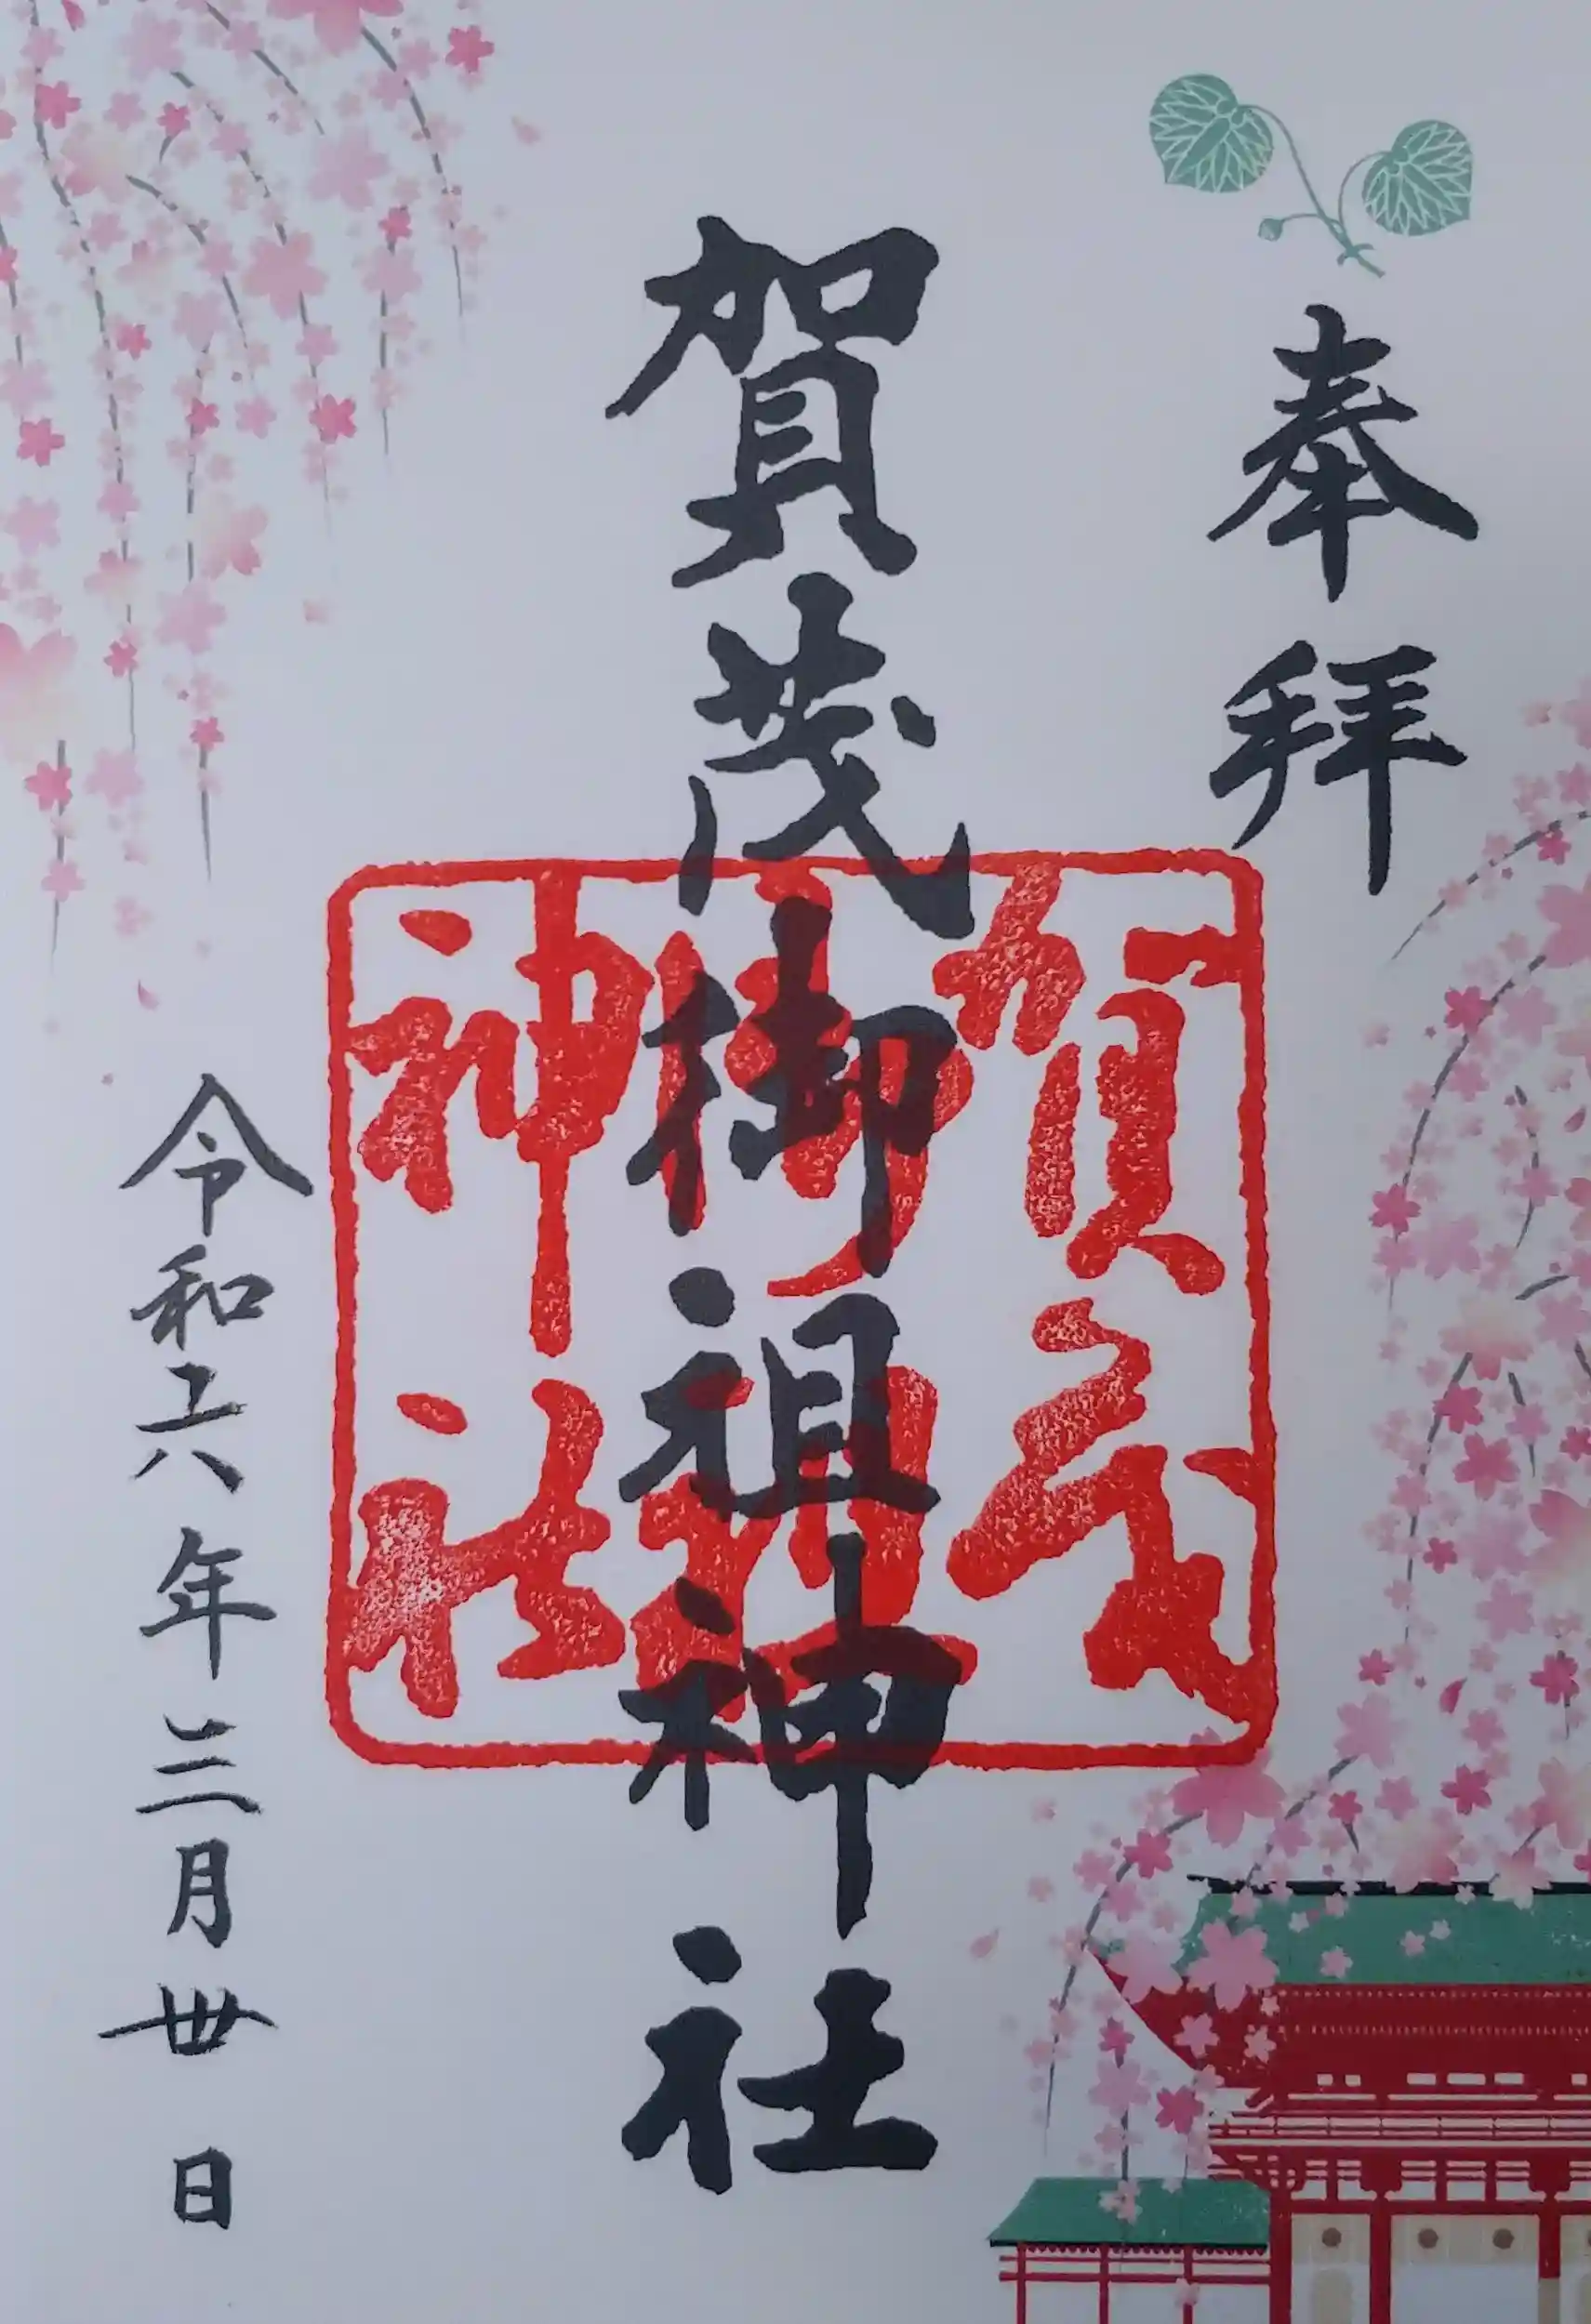 奉拝
賀茂御祖神社
賀茂
御祖
神社
令和六年三月卅日